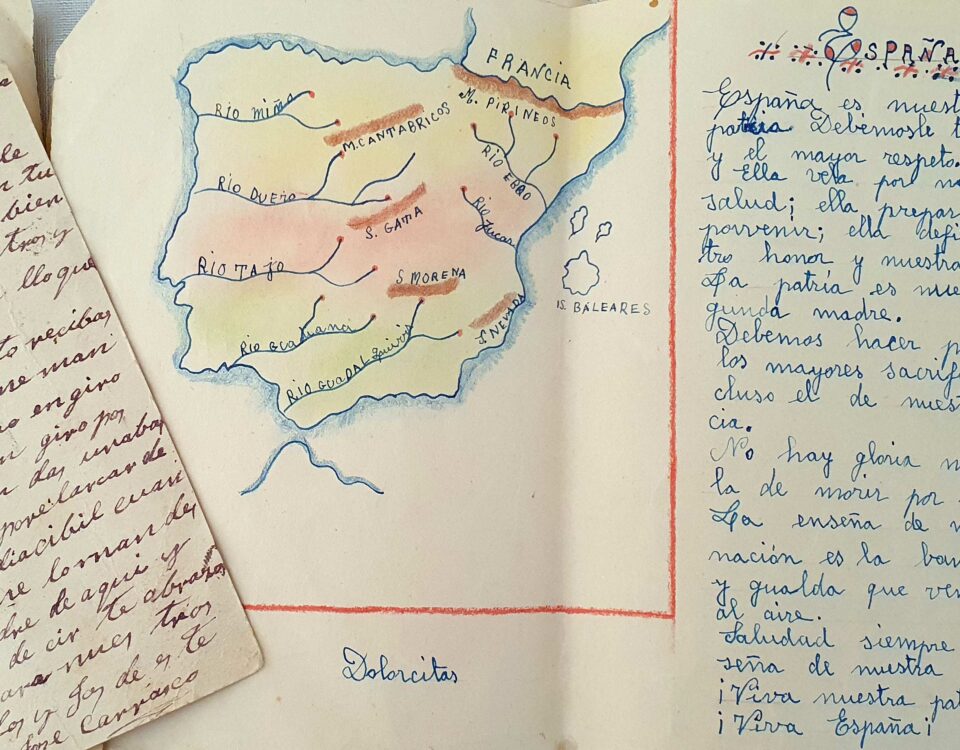 le
tu
bien
tros y
lloque
to recibas
me man
no en giro
n giro por
n das unabas
por el arcar de
diacibil cuan
re lo man des
dre de aqui y
de cir te abrasos
ara nues tros
los y Jos de es te
Jose Carrasco
FRANCIA
M. PIRINEOS
RIO MIÑO
M. CANTABRICOS
RIO EBRO
RIO DUERO
S. GATA
Rio Jucar
RIO TAJO
S MORENA
IS. BALEARES
S. NEVADA
RIO GUADIANA
RIO GUADALquivir
Dolorcitas
ESPAÑA
España es nuest
patria. Debémosle t
y el mayor respeto.
y Ella vela por nu
salud; ella prepar
porvenir; ella defi
tro honor y nuestra
La patria es nue
gunda madre.
Debemos hacer p
los mayores sacrifi
cluso el de nuest
cia.
No hay gloria m
la de morir por
La enseña de n
nación es la ban
y gualda que ve
al aire.
Saludad siempre
seña de nuestra
¡Viva nuestra pat
¡Viva España¡